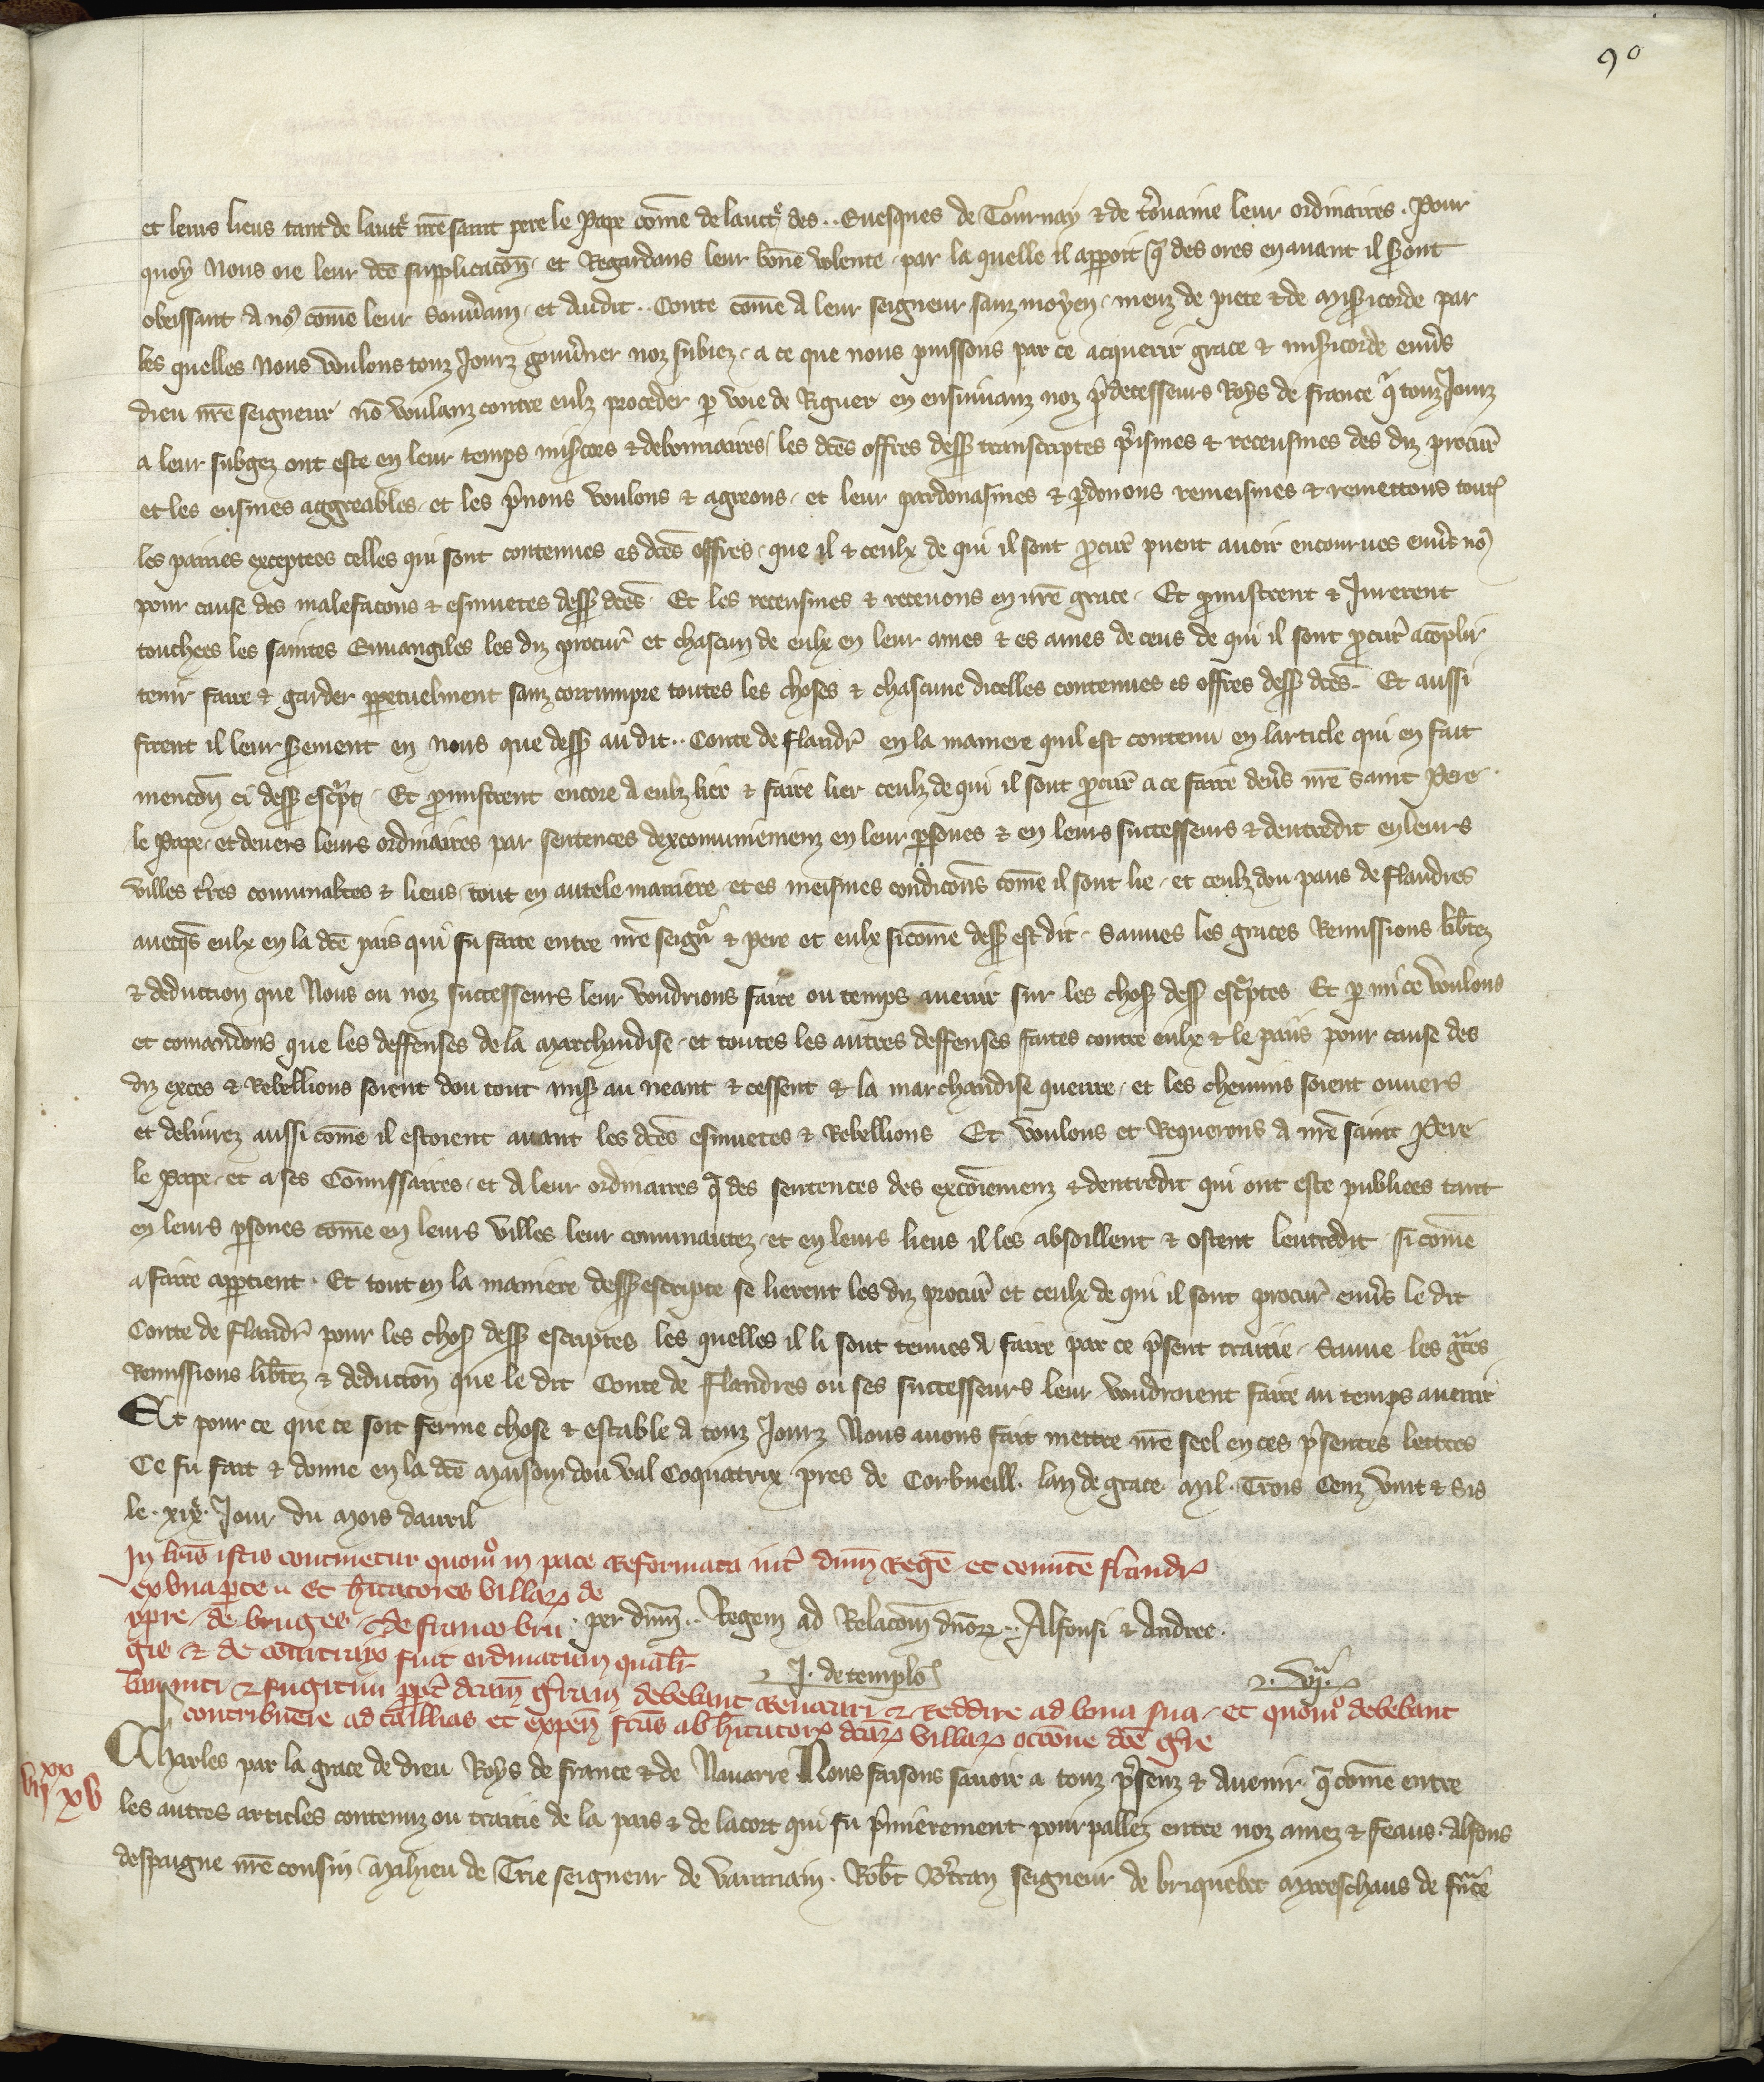 90
et leurs lieus tant de lauct͛ nr̄e saint pere le Pape com̄e de lauct͛ des .. Euesques de Tournay & de t̾ouaine leur ordinaires . Pour
quoy Nous oie leur dc̄e supplicacōn . et Regardans leur bon̄e volente . par la quelle il apparoit q̄ des ores en auant il s̾ont
obeissant a no9 com̄e leur souu̾ain . et audit .. Conte com̄e a leur seigneur sanz moyen . meuz de piete & de mis̾icorde par
les quelles Nous voulons touz Jourz gouu̾ner noz subiez . a ce que nous puissons par ce acquerir grace & mis̾icorde enu̾s
dieu nr̄e seigneur nō voulanz contre eulz proceder p̱ voie de Riguer en ensuiuanz noz p̾decesseurs Roys de france q̄ touz Jourz
a leur subgez ont este en leur temps mis̾cors & debonnaires / les dc̄es offres dess9 transcriptes p̾ismes & receusmes des diz procur̄
et les eusmes aggreables . et les p̾nons voulons & agreons . et leur pardonasmes & p̱donons remeismes & remettons tout̾
les painies exceptees celles qui sont contenues es dc̄es offres . que il & ceulx de qui il sont ꝓcur̄ puent auoir encourues enu̾s no9
pour cause des malefacons & esmuetes dess9 dc̄es . Et les receusmes & receuons en nr̄e grace . Et ꝓmistrent & Jurerent
touchees les saintes Euuangiles les diz procur̄ et chascun de eulx en leur ames & es ames de ceus de qui il sont ꝓcur̄ acōplir
tenir faire & garder p̱petuelment sanz corrumpre toutes les choses & chascune dicelles contenues es offres dess9 dc̄es . Et aussi
firent il leur s̾ement en nous que dess9 au dit .. Conte de flandr̄ en la maniere quil est contenu en larticle qui en fait
mencōn ci dess9 esc̾pt . Et ꝓmistrent encore a eulz lier & faire lier ceulz de qui il sont ꝓcur̄ a ce faire deu̾s nr̄e saint Pere
le Pape . et deuers leurs ordinaires par sentences dexcomuniemenz en leur p̱sones & en leurs successeurs & dentredit en leurs
villes t̾res comunaltes & lieus . tout en autele maniere et es meismes condicōns com̄e il sont lie . et ceulz dou pais de flandres
auecq̄s eulx en la dc̄e pais qui fu faite entre nr̄e seign̾ & pere et eulx sicom̄e dess9 est dit . Sauues les graces Remissions lib̾tez
& deduction que Nous ou noz successeurs leur voudrions faire ou temps auenir sur les chos9 dess9 esc̾ptes Et p̱ mi ce voulons
et comandons que les deffenses de la marchandise . et toutes les autres deffenses faites contre eulx & le pais pour cause des
diz exces & Rebellions soient dou tout mis9 au neant & cessent & la marchandise queure . et les chemins soient ouuers
et deliurez aussi com̄e il estoient auant les dc̄es esmuetes & Rebellions Et voulons et Requerons a nr̄e saint Pere
le Pape . et a ses Com̄issaires . et a leur ordinaires q̄ des sentences des excōiemenz & dentredit qui ont este publiees tant
en leurs p̱sones com̄e en leurs villes leur comunautez . et en leurs lieus il les absoillent & ostent lentredit sicom̄e
a faire app̱tient . Et tout en la maniere dess9 escripte se lierent les diz procur̄ et ceulx de qui il sont procur̄ enu̾s le dit
Conte de flandr̄ pour les chos9 dess9 escriptes les quelles il li sont tenues a faire par ce p̾sent traitie . Sauue les g̾ces
Remissions lib̾tez & deductōn que le dit Conte de flandres ou ses successeurs leur voudroient faire au temps auenir
Et pour ce que ce soit ferme chose & estable a touz Jourz Nous auons fait mettre nr̄e seel en ces p̾sentes lettres
Ce fu fait & donne en la dc̄e maison dou val Coquatrix pres de Corbueill . lan de grace mil . Trois Cenz vint & sis
le . xix̾ . Jour du mois dauril
In lr̄is istis continetur quomº in pace Reformata int̾ dn̄m Regē et comitē flandr̾
ex vna p̱te . et h̾itatores villaꝝ de
ypre . de bruges . de franco bru
. per dn̄m .. Regem ad Relacōm dn̄oꝝ .. Alfonsi & Andree .
gis & de cortraco fuit ordinatum qualit̾
J . de templo
. vij̾ .
banniti & fugitiui p̱pt̾ dc̄am g̾ram debebant Reuocari & Reddire ad bona sua . et quomº debebant
contribuere ad taillias et expen̄ fc̄as ab h̾itatorꝝ dc̄aꝝ villaꝝ occōne dc̄e g̾re
Charles par la grace de dieu Roys de france & de Nauarre Nous faisons sauoir a touz p̾senz & auenir . q̄ com̄e entre
vijxx xv
les autres articles contenuz ou traitie de la pais & de lacort qui fu p̾mierement pourpallez entre noz amez & feaus . Alfons
despaigne nr̄e cousin Mahieu de Trie seigneur de vaumain . Rob̾t B̾tran seigneur de briquebec mareschaus de fr̾nce